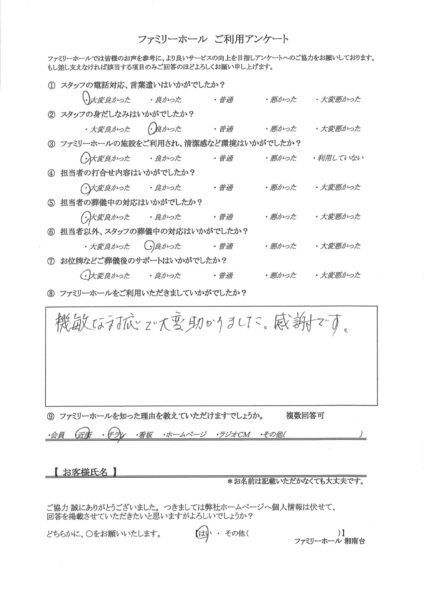 ファミリーホール　ご利用アンケート
ファミリーホールでは皆様のお声を参考に、より良いサービスの向上を目指しアンケートへのご協力をお願いしております。
もし差し支えなければ該当する項目のみご回答のほどよろしくお願い申し上げます。
① スタッフの電話対応、言葉遣いはいかがでしたか？
・大変良かった　・良かった　・普通　・悪かった　・大変悪かった
② スタッフの身だしなみはいかがでしたか？
・大変良かった　・良かった　・普通　・悪かった　・大変悪かった
③ ファミリーホールの施設をご利用され、清潔感など環境はいかがでしたか？
・大変良かった　・良かった　・普通　・悪かった　・利用していない
④ 担当者の打合せ内容はいかがでしたか？
・大変良かった　・良かった　・普通　・悪かった　・大変悪かった
⑤ 担当者の葬儀中の対応はいかがでしたか？
・大変良かった　・良かった　・普通　・悪かった　・大変悪かった
⑥ 担当者以外、スタッフの葬儀中の対応はいかがでしたか？
・大変良かった　・良かった　・普通　・悪かった　・大変悪かった
⑦ お位牌などご葬儀後のサポートはいかがでしたか？
・大変良かった　・良かった　・普通　・悪かった　・大変悪かった
⑧ ファミリーホールをご利用いただきましていかがでしたか？
機敏な対応で大変助かりました。感謝です。
⑨ ファミリーホールを知った理由を教えていただけますでしょうか。　複数回答可
・会員　・近所　・チラシ　・看板　・ホームページ　・ラジオCM　・その他(　)
【 お客様氏名 】
＊お名前は記載いただかなくても大丈夫です。
ご協力 誠にありがとうございました。つきましては弊社ホームページへ個人情報は伏せて、
回答を掲載させていただきたいと思いますがよろしいでしょうか？
どちらかに、〇をお願いいたします。　【はい ・ その他(　)】
ファミリーホール 湘南台